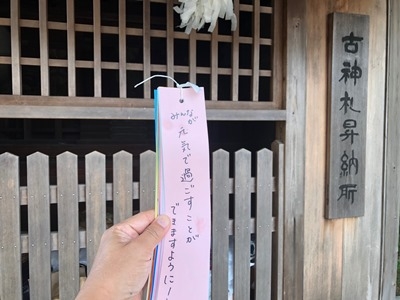 みんなが
元気で過ごすことが
できますように！
古神札昇納所